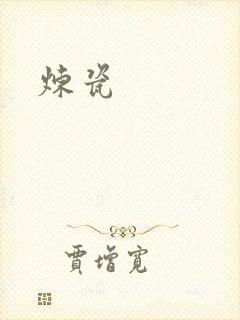 煉瓷
賈增寬